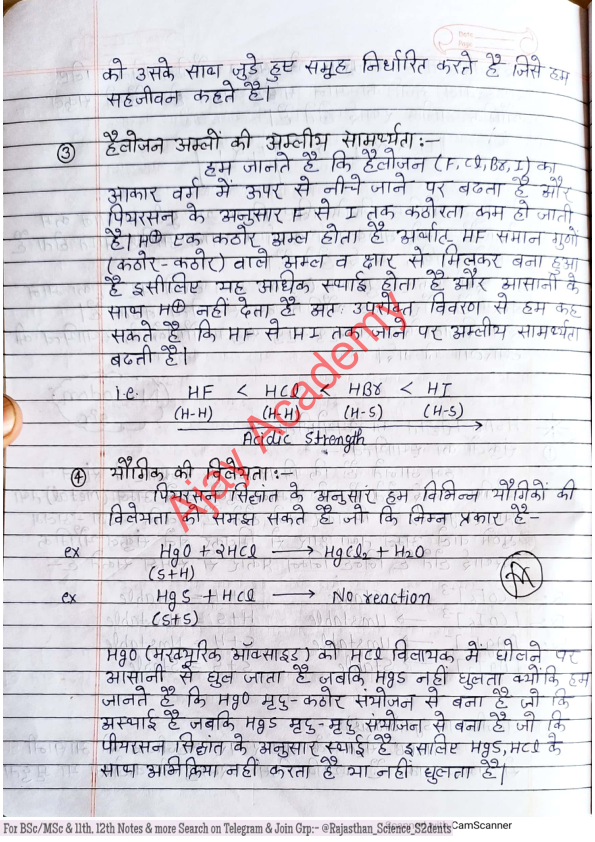 Date
Page
को उसके साथ जुड़े हुए समूह निर्धारित करते है जिसे हम
सहजीवन कहते है।
③ हैलोजन अम्लों की अम्लीय सामर्थ्यता:-
हम जानते है कि हैलोजन (F, Cl, Br, I) का
आकार वर्ग में ऊपर से नीचे जाने पर बढता है और
पियरसन के अनुसार F से I तक कठोरता कम हो जाती
है। H⊕ एक कठोर अम्ल होता है अर्थात HF समान गुणों
(कठोर-कठोर) वाले अम्ल व क्षार से मिलकर बना हुआ
है इसीलिए यह अधिक स्थाई होता है और आसानी के
साथ H⊕ नहीं देता है अतः उपरोक्त विवरण से हम कह
सकते है कि HF से HI तक जाने पर अम्लीय सामर्थ्यता
बढती है।
i.e. HF < HCl < HBr < HI
(H-H) (H-H) (H-S) (H-S)
Acidic Strength
④ यौगिक की विलेयता:-
पियरसन सिद्धांत के अनुसार हम विभिन्न यौगिकों की
विलेयता को समझ सकते है जो कि निम्न प्रकार है-
ex HgO + 2HCl ⟶ HgCl₂ + H₂O
(S+H)
ex HgS + HCl ⟶ No reaction
(S+S)
HgO (मरक्यूरिक ऑक्साइड) को HCl विलायक में घोलने पर
आसानी से घुल जाता है जबकि HgS नहीं घुलता क्योंकि हम
जानते है कि HgO मृदु-कठोर संयोजन से बना है जो कि
अस्थाई है जबकि HgS मृदु-मृदु संयोजन से बना है जो कि
पीयरसन सिद्धांत के अनुसार स्थाई है इसलिए HgS, HCl के
साथ अभिक्रिया नहीं करता है या नहीं घुलता है।
Ajay Academy
For BSc/MSc & 11th, 12th Notes & more Search on Telegram & Join Grp:- @Rajasthan_Science_S2dents
CamScanner